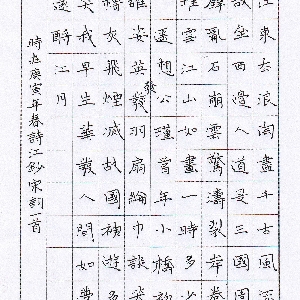 江東去浪淘盡千古風流
故壘西邊人道是三國周
壁亂石崩雲驚濤裂岸捲
堆雪江山如畫一時多
遙想公瑾當年小橋初
雄姿英發羽扇綸巾談笑
灰飛煙滅故國神遊多
笑我早生華發人間如夢
還酹江月
時在庚寅年春詩江鈔宋詞一首